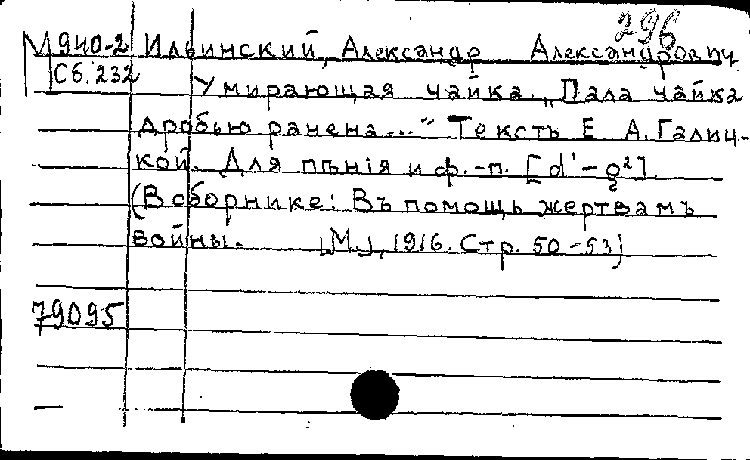 296
М940-2 Ильинский, Александр Александрович
Сб. 232
Умирающая чайка. „Пала чайка
дробью ранена..." Текстъ Е. А. Галиц-
кой. Для пѣнія и ф.-п. [d'-g²].
(В сборнике: Въ помощь жертвамъ
войны. [М.], 1916. Стр. 50-53)
79095